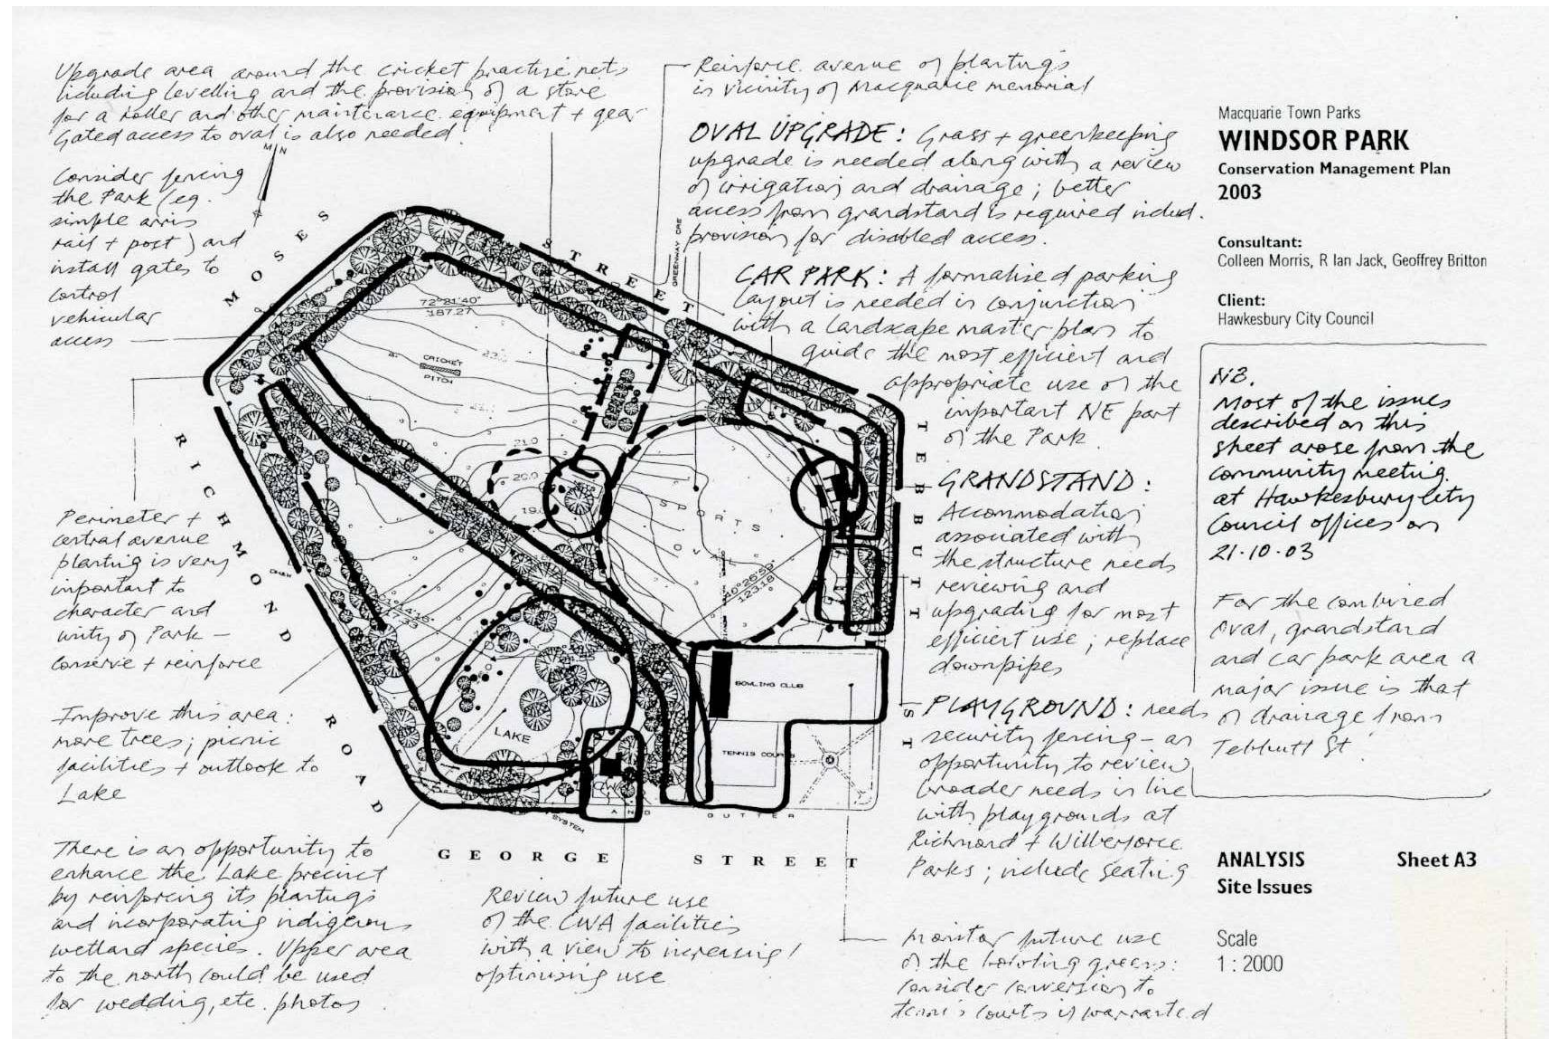 Upgrade area around the cricket practise nets
including levelling and the provision of a store
for a roller and other maintenance equipment + gear
Gated access to oval is also needed.
Consider fencing
the Park (eg.
simple arris
rail + post) and
install gates to
control
vehicular
access
Perimeter +
central avenue
planting is very
important to
character and
unity of Park –
conserve + reinforce
Improve this area:
more trees; picnic
facilities + outlook to
Lake
There is an opportunity to
enhance the Lake precinct
by reinforcing its plantings
and incorporating indigenous
wetland species. Upper area
to the north could be used
for wedding, etc. photos
Reinforce avenue of plantings
in vicinity of Macquarie memorial
OVAL UPGRADE: Grass + greenkeeping
upgrade is needed along with a review
of irrigation and drainage; better
access from grandstand is required includ.
provision for disabled access.
CAR PARK: A formalised parking
layout is needed in conjunction
with a landscape master plan to
guide the most efficient and
appropriate use of the
important NE part
of the Park.
GRANDSTAND:
Accommodation
associated with
the structure needs
reviewing and
upgrading for most
efficient use; replace
downpipes
PLAYGROUND: needs
security fencing – an
opportunity to review
broader needs in line
with playgrounds at
Richmond + Wilberforce
Parks; include seating
Monitor future use
of the bowling greens:
consider conversion to
tennis courts if warranted
Review future use
of the CWA facilities
with a view to increasing /
optimising use
MOSES STREET
RICHMOND ROAD
GEORGE STREET
TEBBUTT ST
GREENWAY CRE
M N
72°21'40"
187.27
CRICKET
PITCH
21.0
20.0
19.0
SPORTS OVAL
40°26'59"
123.18
LAKE
BOWLING CLUB
TENNIS COURTS
AND GUTTER
SYSTEM
Macquarie Town Parks
WINDSOR PARK
Conservation Management Plan
2003
Consultant:
Colleen Morris, R Ian Jack, Geoffrey Britton
Client:
Hawkesbury City Council
NB.
Most of the issues
described on this
sheet arose from the
community meeting
at Hawkesbury City
Council offices on
21.10.03
For the combined
oval, grandstand
and car park area a
major issue is that
of drainage from
Tebbutt St
ANALYSIS
Site Issues
Sheet A3
Scale
1 : 2000